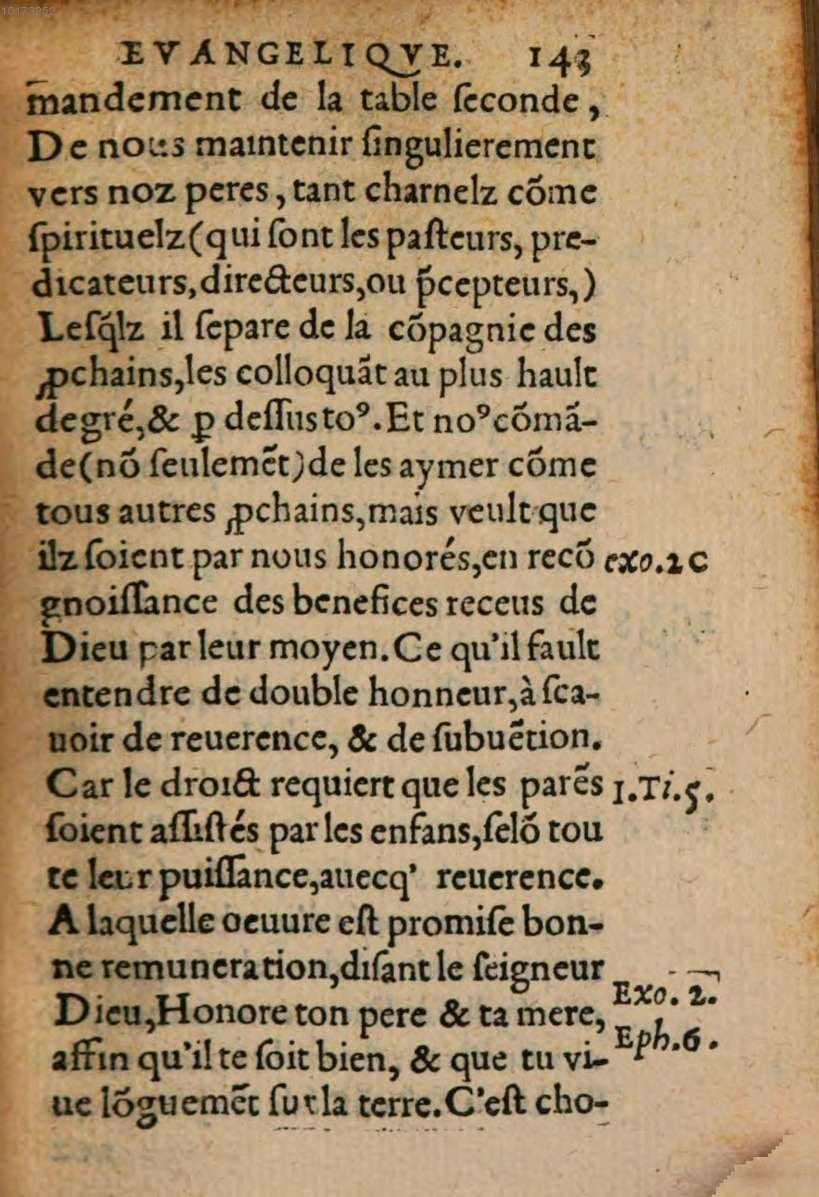 10173952
EVANGELIQVE. 143
m̄andement de la table ſeconde,
De nous maintenir ſingulierement
vers noz peres, tant charnelz cõme
ſpirituelz (qui ſont les paſteurs, pre-
dicateurs, directeurs, ou p̃cepteurs,)
Leſq̃lz il ſepare de la cõpagnie des
ꝓchains, les colloquãt au plus hault
degré, & ꝑ deſſus toꝰ. Et noꝰ cõmã-
de (nõ ſeulemẽt) de les aymer cõme
tous autres ꝓchains, mais veult que
ilz ſoient par nous honorés, en recõ exo.2c
gnoiſſance des benefices receus de
Dieu par leur moyen. Ce qu'il fault
entendre de double honneur, à ſca-
uoir de reuerence, & de ſubuẽtion.
Car le droict requiert que les parẽs 1.Ti.5.
ſoient aſſiſtés par les enfans, ſelõ tou
te leur puiſſance, auecq' reuerence.
A laquelle oeuure eſt promiſe bon-
ne remuneration, diſant le ſeigneur
Dieu, Honore ton pere & ta mere, Exo. 2.
affin qu'il te ſoit bien, & que tu vi- Eph.6.
ue lõguemẽt ſur la terre. C'eſt cho-